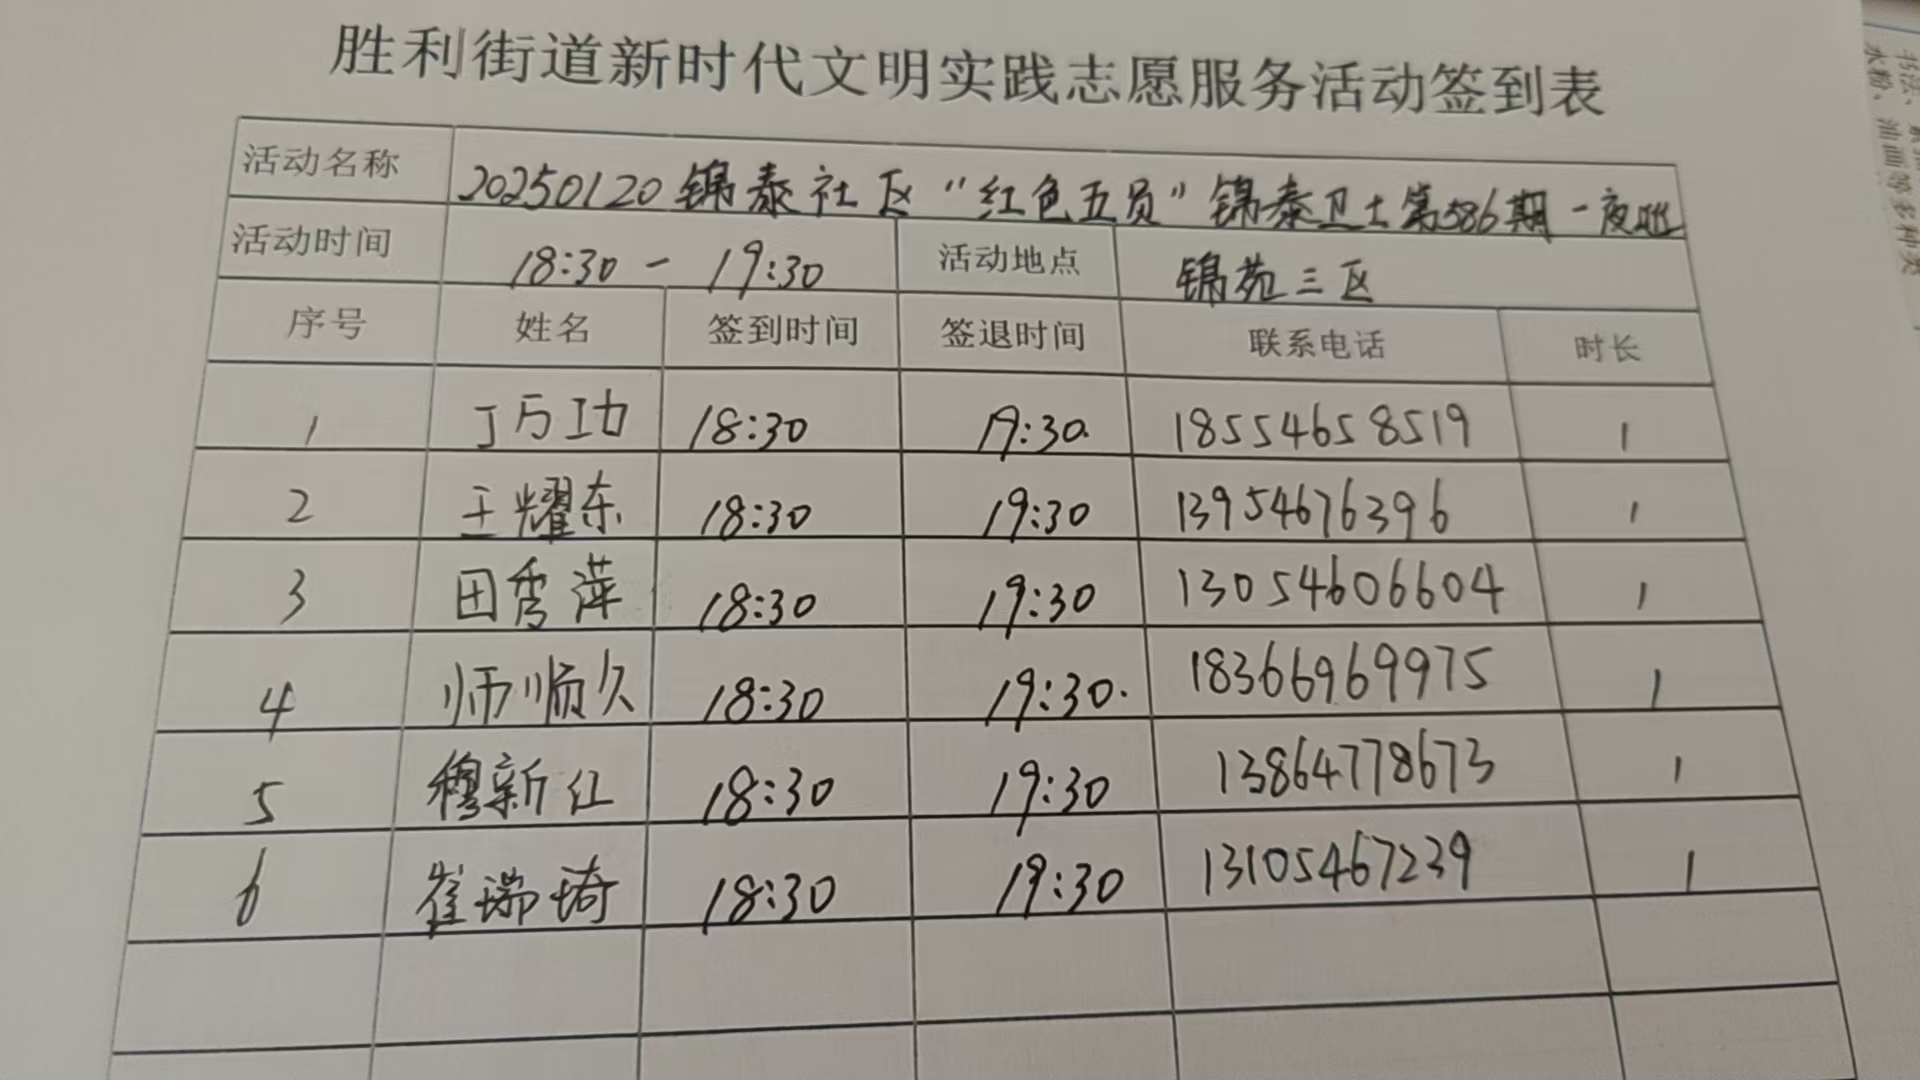 胜利街道新时代文明实践志愿服务活动签到表
活动名称 20250120锦泰社区“红色五员”锦泰卫士第586期-夜巡
活动时间 18:30 - 19:30 活动地点 锦苑三区
序号 姓名 签到时间 签退时间 联系电话 时长
1 丁万功 18:30 19:30. 18554658519 1
2 王耀东 18:30 19:30 13954676396 1
3 田秀萍 18:30 19:30 13054606604 1
4 师顺久 18:30 19:30. 18366969975 1
5 穆新红 18:30 19:30 13864778673 1
6 崔瑞琦 18:30 19:30 13105467239 1
书法、
水粉、油画等多种类